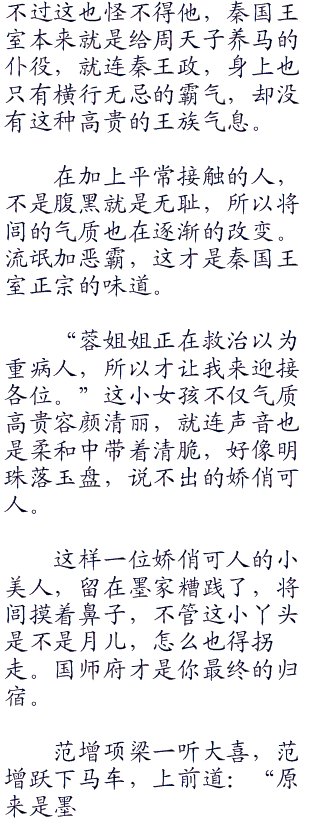 不过这也怪不得他，秦国王
室本来就是给周天子养马的
仆役，就连秦王政，身上也
只有横行无忌的霸气，却没
有这种高贵的王族气息。
在加上平常接触的人，
不是腹黑就是无耻，所以将
闾的气质也在逐渐的改变。
流氓加恶霸，这才是秦国王
室正宗的味道。
“蓉姐姐正在救治以为
重病人，所以才让我来迎接
各位。”这小女孩不仅气质
高贵容颜清丽，就连声音也
是柔和中带着清脆，好像明
珠落玉盘，说不出的娇俏可
人。
这样一位娇俏可人的小
美人，留在墨家糟践了，将
闾摸着鼻子，不管这小丫头
是不是月儿，怎么也得拐
走。国师府才是你最终的归
宿。
范增项梁一听大喜，范
增跃下马车，上前道：“原
来是墨